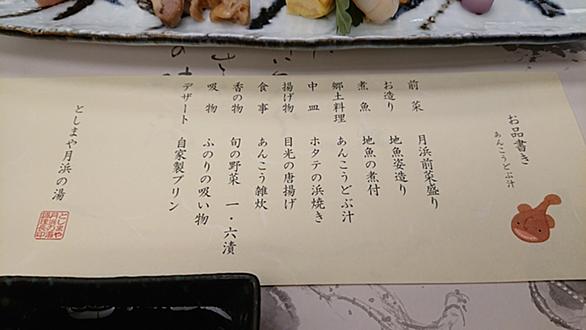 お品書き
あんこうどぶ汁
前菜 月浜前菜盛り
お造り 地魚姿造り
煮魚 地魚の煮付
郷土料理 あんこうどぶ汁
中皿 ホタテの浜焼き
揚げ物 目光の唐揚げ
食事 あんこう雑炊
香の物 旬の野菜 一・六漬
吸物 ふのりの吸い物
デザート 自家製プリン
としまや月浜の湯